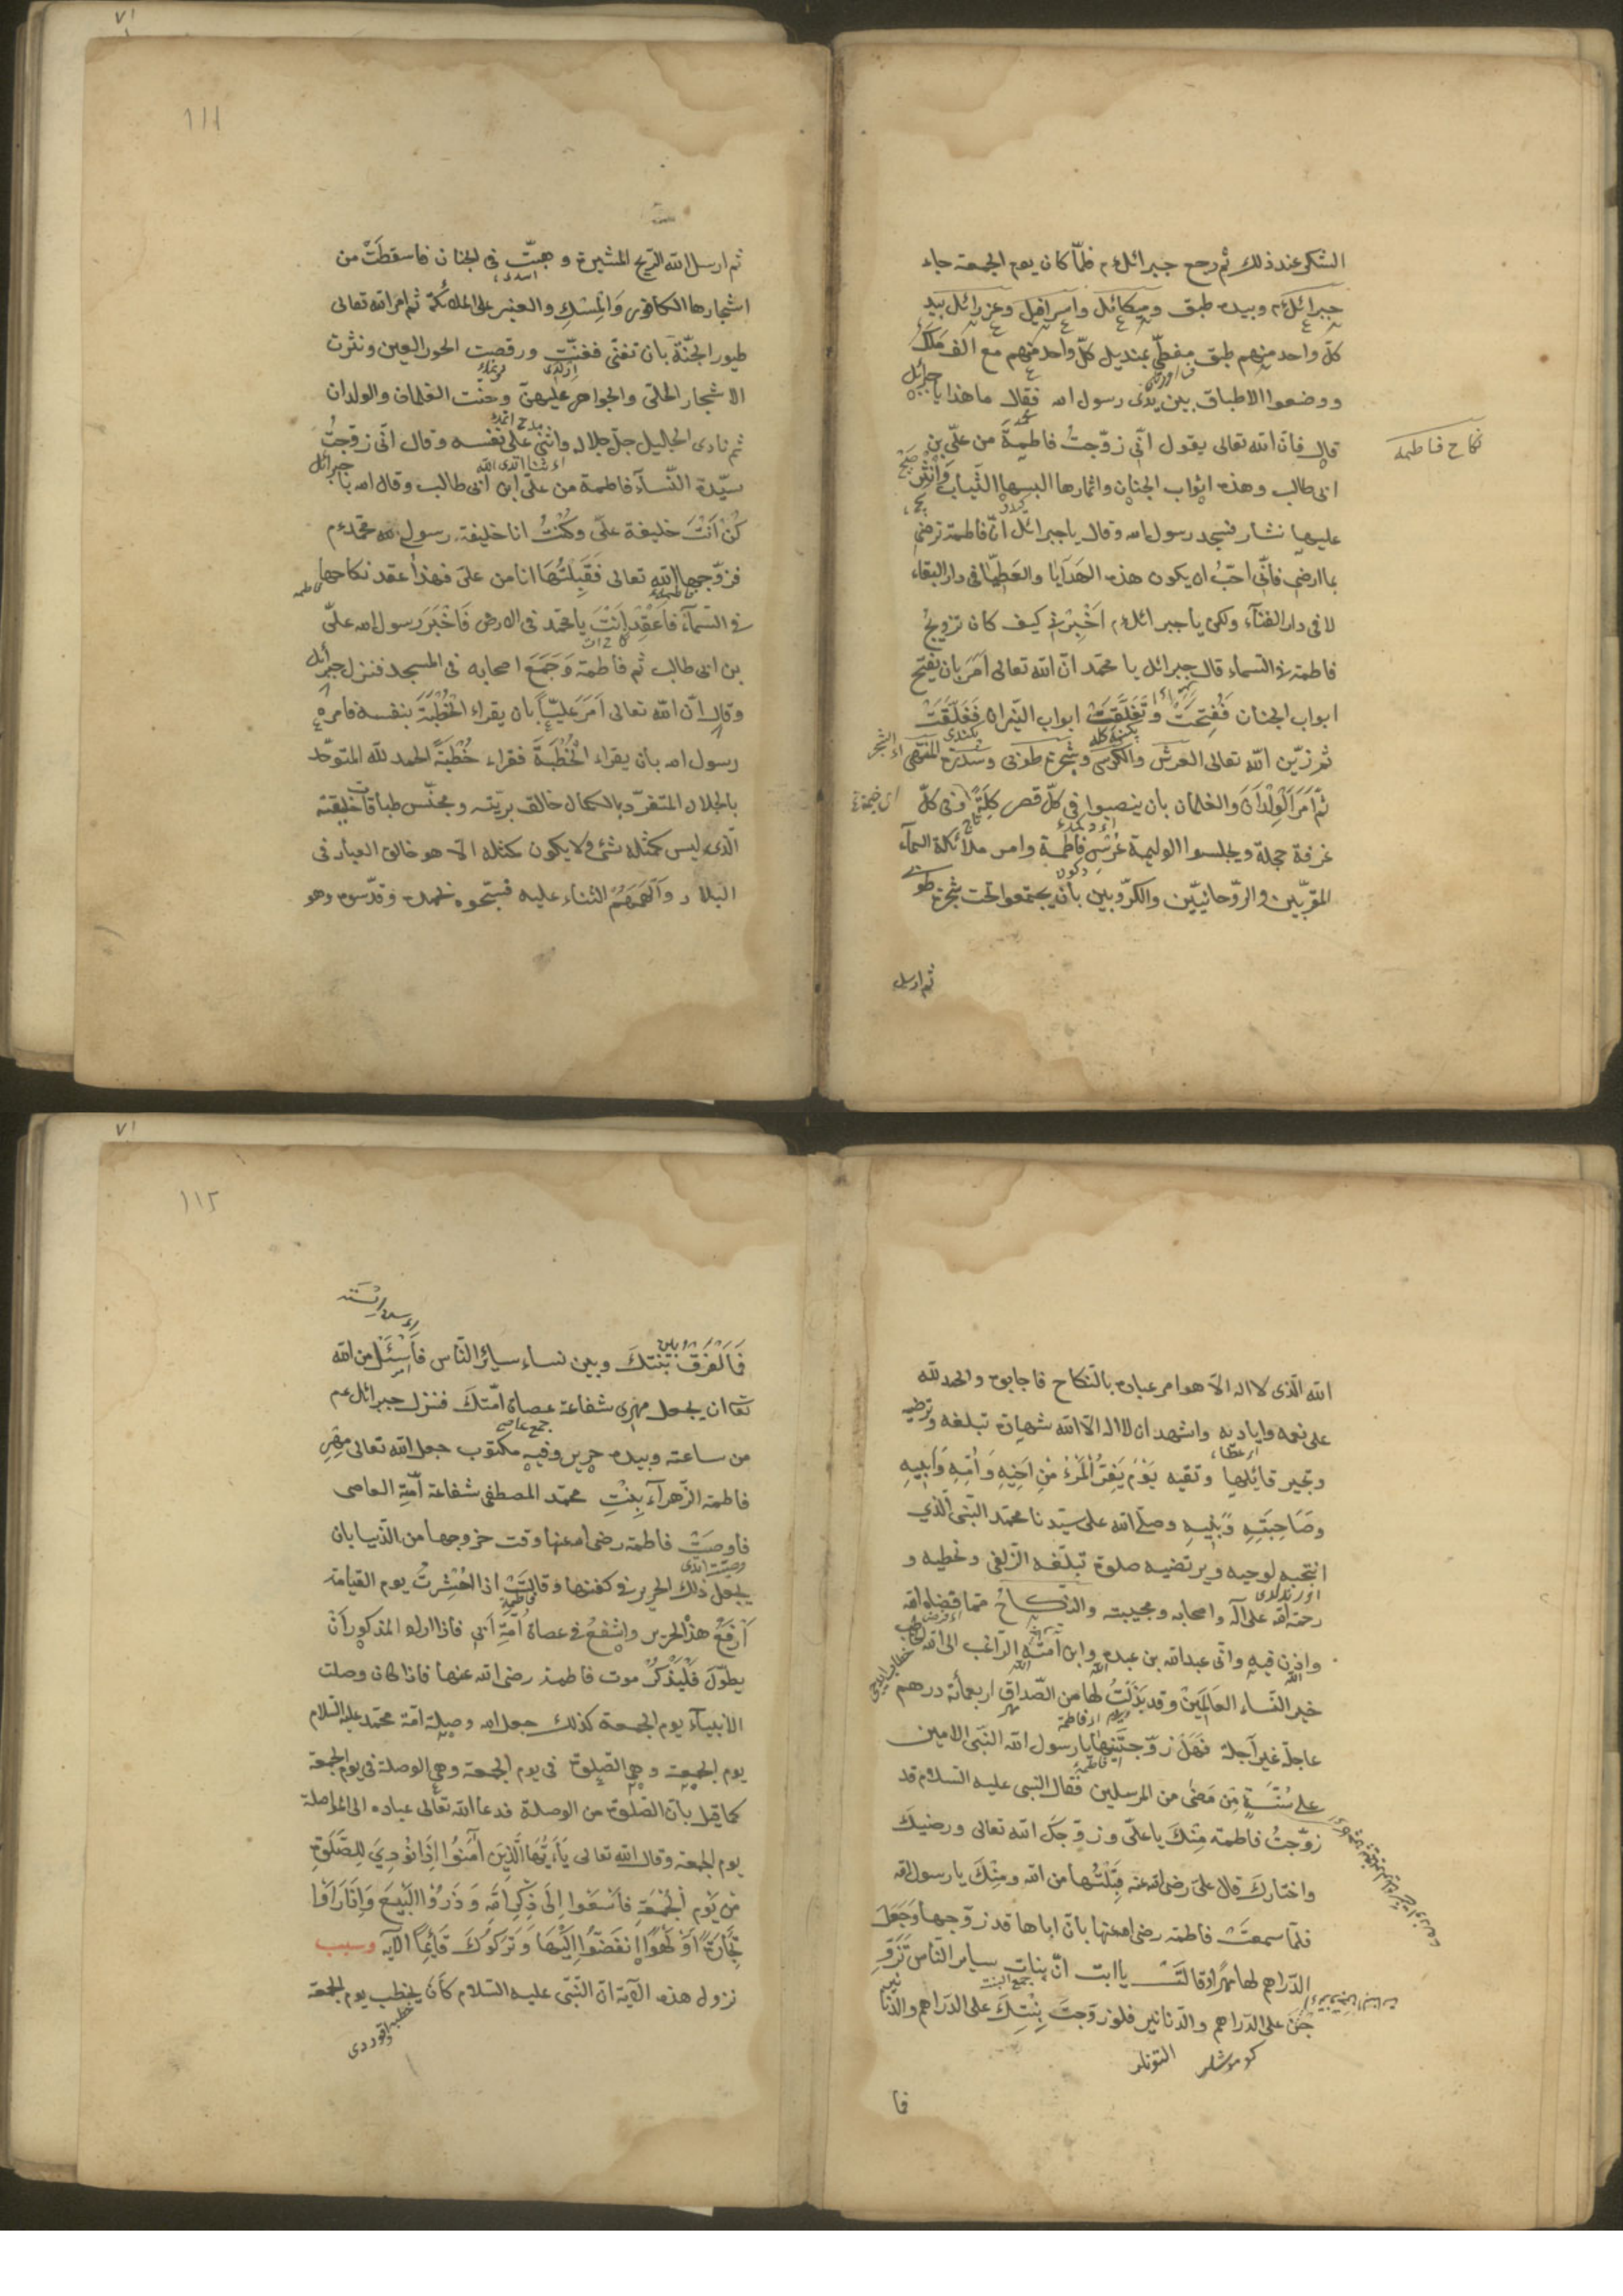 الشكر عند ذلك ثم رجع جبرائل ءم فلمّا كان يوم الجمعة جاء
جبرائل ءم وبيده طبق وميكائل واسرافيل وعزرائل بيد
كلّ واحد منهم طبق مغطّى بمنديل كلّ واحد منهم مع الف مَلَك
ووضعوا الاطباق بين يدى رسول الله فقال ما هذا يا جبرائل
قال فانّ الله تعالى يقول انّى زوّجتُ فاطمةَ من علىّ بن
نكاح فاطمه
ابى طالب وهذه اثواب الجنان واثمارها البسها الثّياب وَانْثِر
عليها نثار فسجد رسول الله وقال يا جبرائل انّ فاطمة ترضى
بما ارضى فانّى احبّ ان يكون هذه الهَدَايَا والعَطِيّا فى دار البقاء
لا فى دار الفنآء ولكن يا جبرائل ءم اَخْبِرْنِى كيف كان تزويجُ
فاطمة فى السّماء قال جبرائل يا محمّد انّ الله تعالى اَمَرَ بان يفتح
ابواب الجنان فَفُتِحَتْ وتَغَلَّقَتْ ابواب النّيران فَغَلَّقَتْ
ثم زيّن الله تعالى العَرش والكرسى وشجرة طوبى وسدرة المنتهى
ثمّ اَمَرَ الْوِلْدَانَ والغلمان بان ينصبوا فى كلّ قصر كِلَّةً وفى كلّ
غرفة حجلة ويجلسوا الوليمة عُرْسِ فاطمة وامر ملائكة السمآء
المقرّبين والرّوحانيّين والكرّوبين بان يجتمعوا تحت شجرة طوبى
ثم ارسل
١١١
ثم ارسل الله الرّيح المثيرة وهبّت فى الجنان فاسقطَتْ من
اشجارها الكافور وَالْمِسْكِ والعنبر على الملائكة ثم امر الله تعالى
طيور الجنّة بان تغنّى فغنّت ورقصت الحور العين ونثرت
الاشجار الحلى والجواهر عليهنّ وحنّت الغلمان والولدان
ثم نادى الجليل جلّ جلاله واثنى على نفسه وقال انّى زوّجتُ
سيّدة النّسآء فاطمة من علىّ ابن ابى طالب وقال الله يا جبرائل
كُنْ اَنْتَ خليفة علىّ وكُنْتُ انا خليفة رسولى محمّد ءم
فزوّجها الله تعالى فَقَبِلْتُهَا انا من علىّ فهذا عقد نكاحها
فى السّمآء فَاعْقِدْ اَنْتَ يا محمّد فى الارض فَاَخْبَرَ رسول الله علىّ
بن ابى طالب ثم فاطمة وَجَمَعَ اصحابه فى المسجد فنزل جبرائل
وقال انّ الله تعالى اَمَرَ عَلِيّاً بان يقراء الْخُطْبَةَ بنفسه فامره
رسول الله بان يقراء الْخُطْبَةَ فقراء خُطْبَةً الحمد للّه المتوحّد
بالجلال المتفرّد بالكمال خالق بريّته ومجنّس طباقات خليقته
الّذى ليس كمثله شئ ولا يكون كمثله الّا هو خالق العباد فى
البلاد وَاَلْهَمَهُمُ الثناء عليه فسبّحوه بحمده وقدّسوه وهو
الله الّذى لا اله الّا هو امر عباده بالنّكاح فاجابوه والحمد للّه
على نعمه واياديه واشهد ان لا اله الّا الله شهادة تبلغه وترضيه
وتجير قائلها وتقيه يَوْمَ يَفِرُّ الْمَرْءُ مِنْ اَخِيهِ وَاُمِّهِ وَاَبِيهِ
وصَاحِبَتِهِ وَبَنِيهِ وصلّى الله على سيّدنا محمّد النّبىّ الّذى
انتجبه لوحيه ويرتضيه صلوة تبلّغه الزّلفى وتحطيه و
رحمة الله على آله واصحابه ومحبيته والنّكاحُ ممّا قضاه الله
واذن فيه وانّى عبد الله بن عبده وابن اَمَتِه الرّاغب الى الله
خير النّساء العَالَمِينْ وقد بَذَلْتُ لها من الصّداق اربعمأئة درهم
عاجلة غير آجلة فَهَلْ زوّجتَنِيها يا رسول الله النّبىّ الامين
على سُنّةِ مَنْ مَضَى من المرسلين فقال النبى عليه السّلام قد
زوّجتُ فاطمة مِنْكَ يا علىّ وزوّجك الله تعالى ورضيك
واختارك قال علىّ رضى الله عنه قَبِلْتُها من الله ومِنْكَ يا رسول الله
فلمّا سمعَتْ فاطمة رضى الله عنها بانّ اباها قد زوّجها وَجَعَلَ
الدّراهم لها مَهراً وقالَتْ يا ابت انّ بنات سيائر النّاس تَزَوَّ
جْنَ على الدّراهم والدّنانير فلو زوّجتَ بِنْتِكَ على الدّراهم والدّنانير
كوموشلر التونلر
فا
١١٢
فَمَالْفَرْقُ بَيْنَ بِنْتِكَ وبين نساء سيائر النّاس فَاَسْئَلُ من الله
تعا ان يجعل مهرى شفاعة عصاة امّتك فنزل جبرائل عم
جمع عاصى
من ساعته وبيده حرير وفيه مكتوب جعل الله تعالى مَهْرِ
فاطمة الزّهرآء بِنْتِ محمّد المصطفى شفاعة اُمَّتِه العاصى
فاوصَتْ فاطمة رضى الله عنها وقت خروجها من الدّنيا بان
يجعل ذلك الحرير فى كفنها وقالَتْ اذا الحُشِرتُ يوم القيامة
اَرْفَعُ هذا الحرير واشفعُ فى عصاة اُمّةِ اَبِى فاذا اراد المذكور اَنْ
يطوّل فَلْيَذْكُرْ موت فاطمة رضى الله عنها فاذا كان وصلت
الانبيآء يوم الجمعة كذلك جعل الله وصيلة امّة محمّد عليه السّلام
يوم الجمعة وهى الصّلوة فى يوم الجمعة وهى الوصلة فى يوم الجمعة
كما قيل بانّ الصّلوة من الوصلة فدعا الله تعالى عباده الى المواصلة
يوم الجمعة وقال الله تعالى يَآءَيُّهَا الَّذِينَ اٰمَنُوا اِذَا نُودِىَ لِلصَّلَوةِ
مِنْ يَوْمِ الْجُمْعَةِ فَاسْعَوْا اِلَى ذِكْرِ اللهِ وَذَرُوا الْبَيْعَ وَاِذَا رَاَوْا
تِجَارَةً اَوْ لَهْوًا انْفَضُّوا اِلَيْهَا وَتَرَكُوكَ قَائِمًا الآيه وسبب
نزول هذه الآية انّ النّبىّ عليه السّلام كَانَ يخطب يوم الجمعة
خطبه اوقوردى